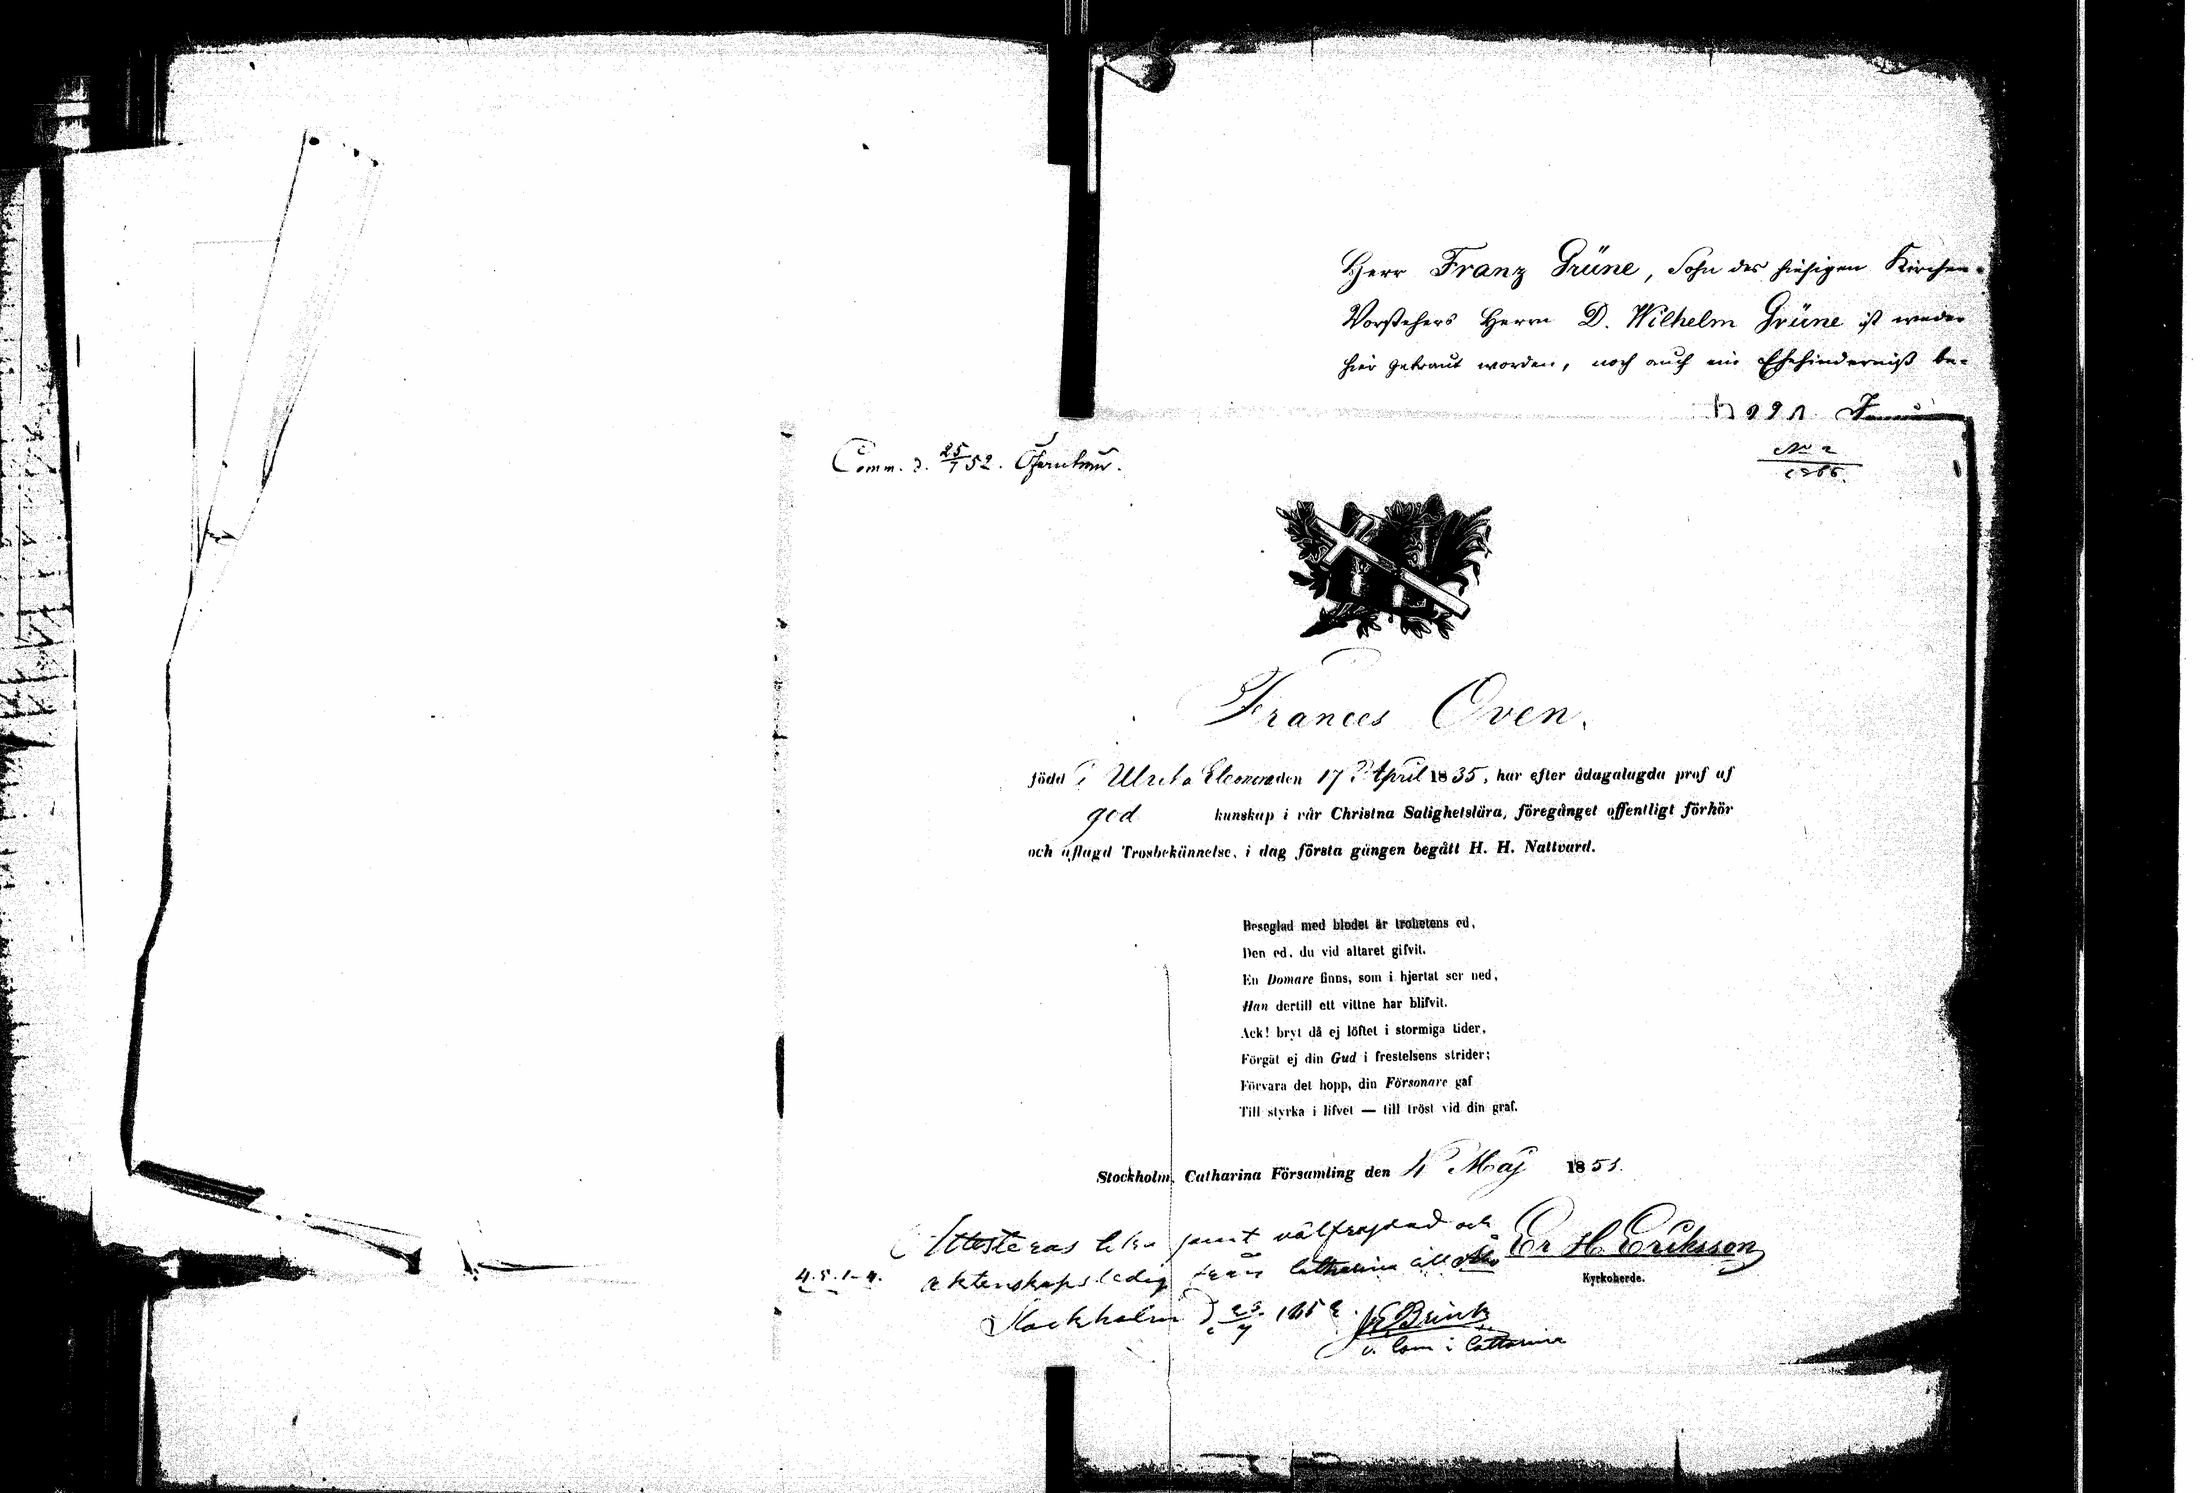 Herr Franz Grüne, Sohn des hiesigen Kirchen-
Vorstehers Herrn D. Wilhelm Grüne ist weder
hier getraut worden, noch auch ein Ehehinderniß be-
Comm. d. 25/7 52.
No 2
Frances Oven.
född i Ulrika Eleonora den 17 April 1835, har efter ådagalagda prof af
god kunskap i vår Christna Salighetslära, föregånget offentligt förhör
och aflagd Trosbekännelse, i dag första gången begått H. H. Nattvard.
Beseglad med blodet är trohetens ed,
Den ed, du vid altaret gifvit.
En Domare finns, som i hjertat ser ned,
Han dertill ett vittne har blifvit.
Ack! bryt då ej löftet i stormiga tider,
Förgät ej din Gud i frestelsens strider;
Förvara det hopp, din Försonare gaf
Till styrka i lifvet — till tröst vid din graf.
Stockholm, Catharina Församling den 4 Maj 1851.
Er H Eriksson
Kyrkoherde.
Attesteras samt välfrejdad och
4.5.1-4. äktenskapsledig från Catharina till
Stockholm d 23/7 1852.
v. Com i Catharina